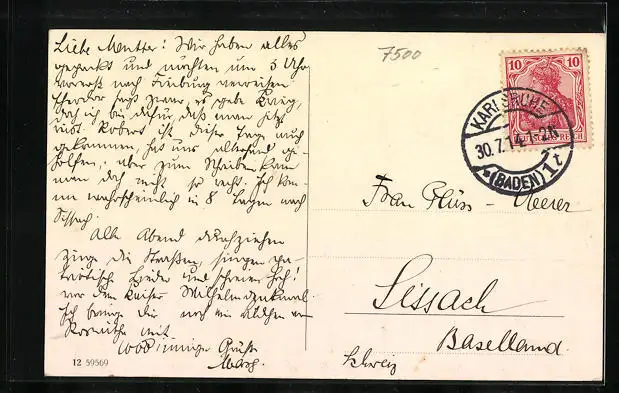 Liebe Mutter! Wir haben alles
gepackt und möchten um 5 Uhr
nach Freiburg verreisen
Theodor sagt zwar, es gebe Krieg,
doch ich bin dafür, daß man jetzt
Robert ist dieser Tage auch
gekommen, hat uns ge-
holfen, aber zum Schreiben kam
man doch nicht so recht. Ich kom-
me wahrscheinlich in 8 Tagen nach
Sissach.
Alle Abend durchziehen
Züge die Straßen, singen pa-
triotische Lieder und schreien Hoch!
vor dem Kaiser Wilhelmdenkmal.
Ich bringe dir noch ein
mit
1000 innige Grüße
12 59569
7500
10 10
DEUTSCHES REICH
KARLSRUHE
30.7.14. 1-2N
*(BADEN) 1t
Frau
Sissach
Baselland.
Schweiz